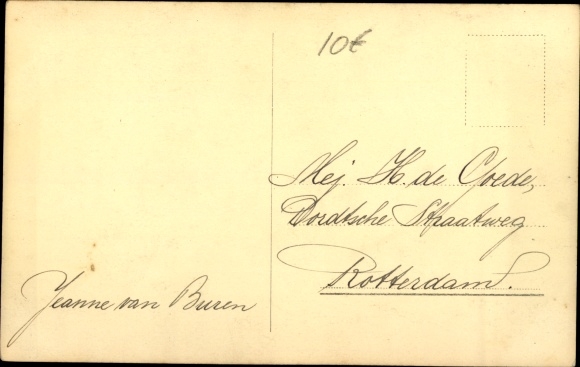 10€
Mej. H. de Goede,
Dordtsche Straatweg
Rotterdam.
Jeanne van Buren